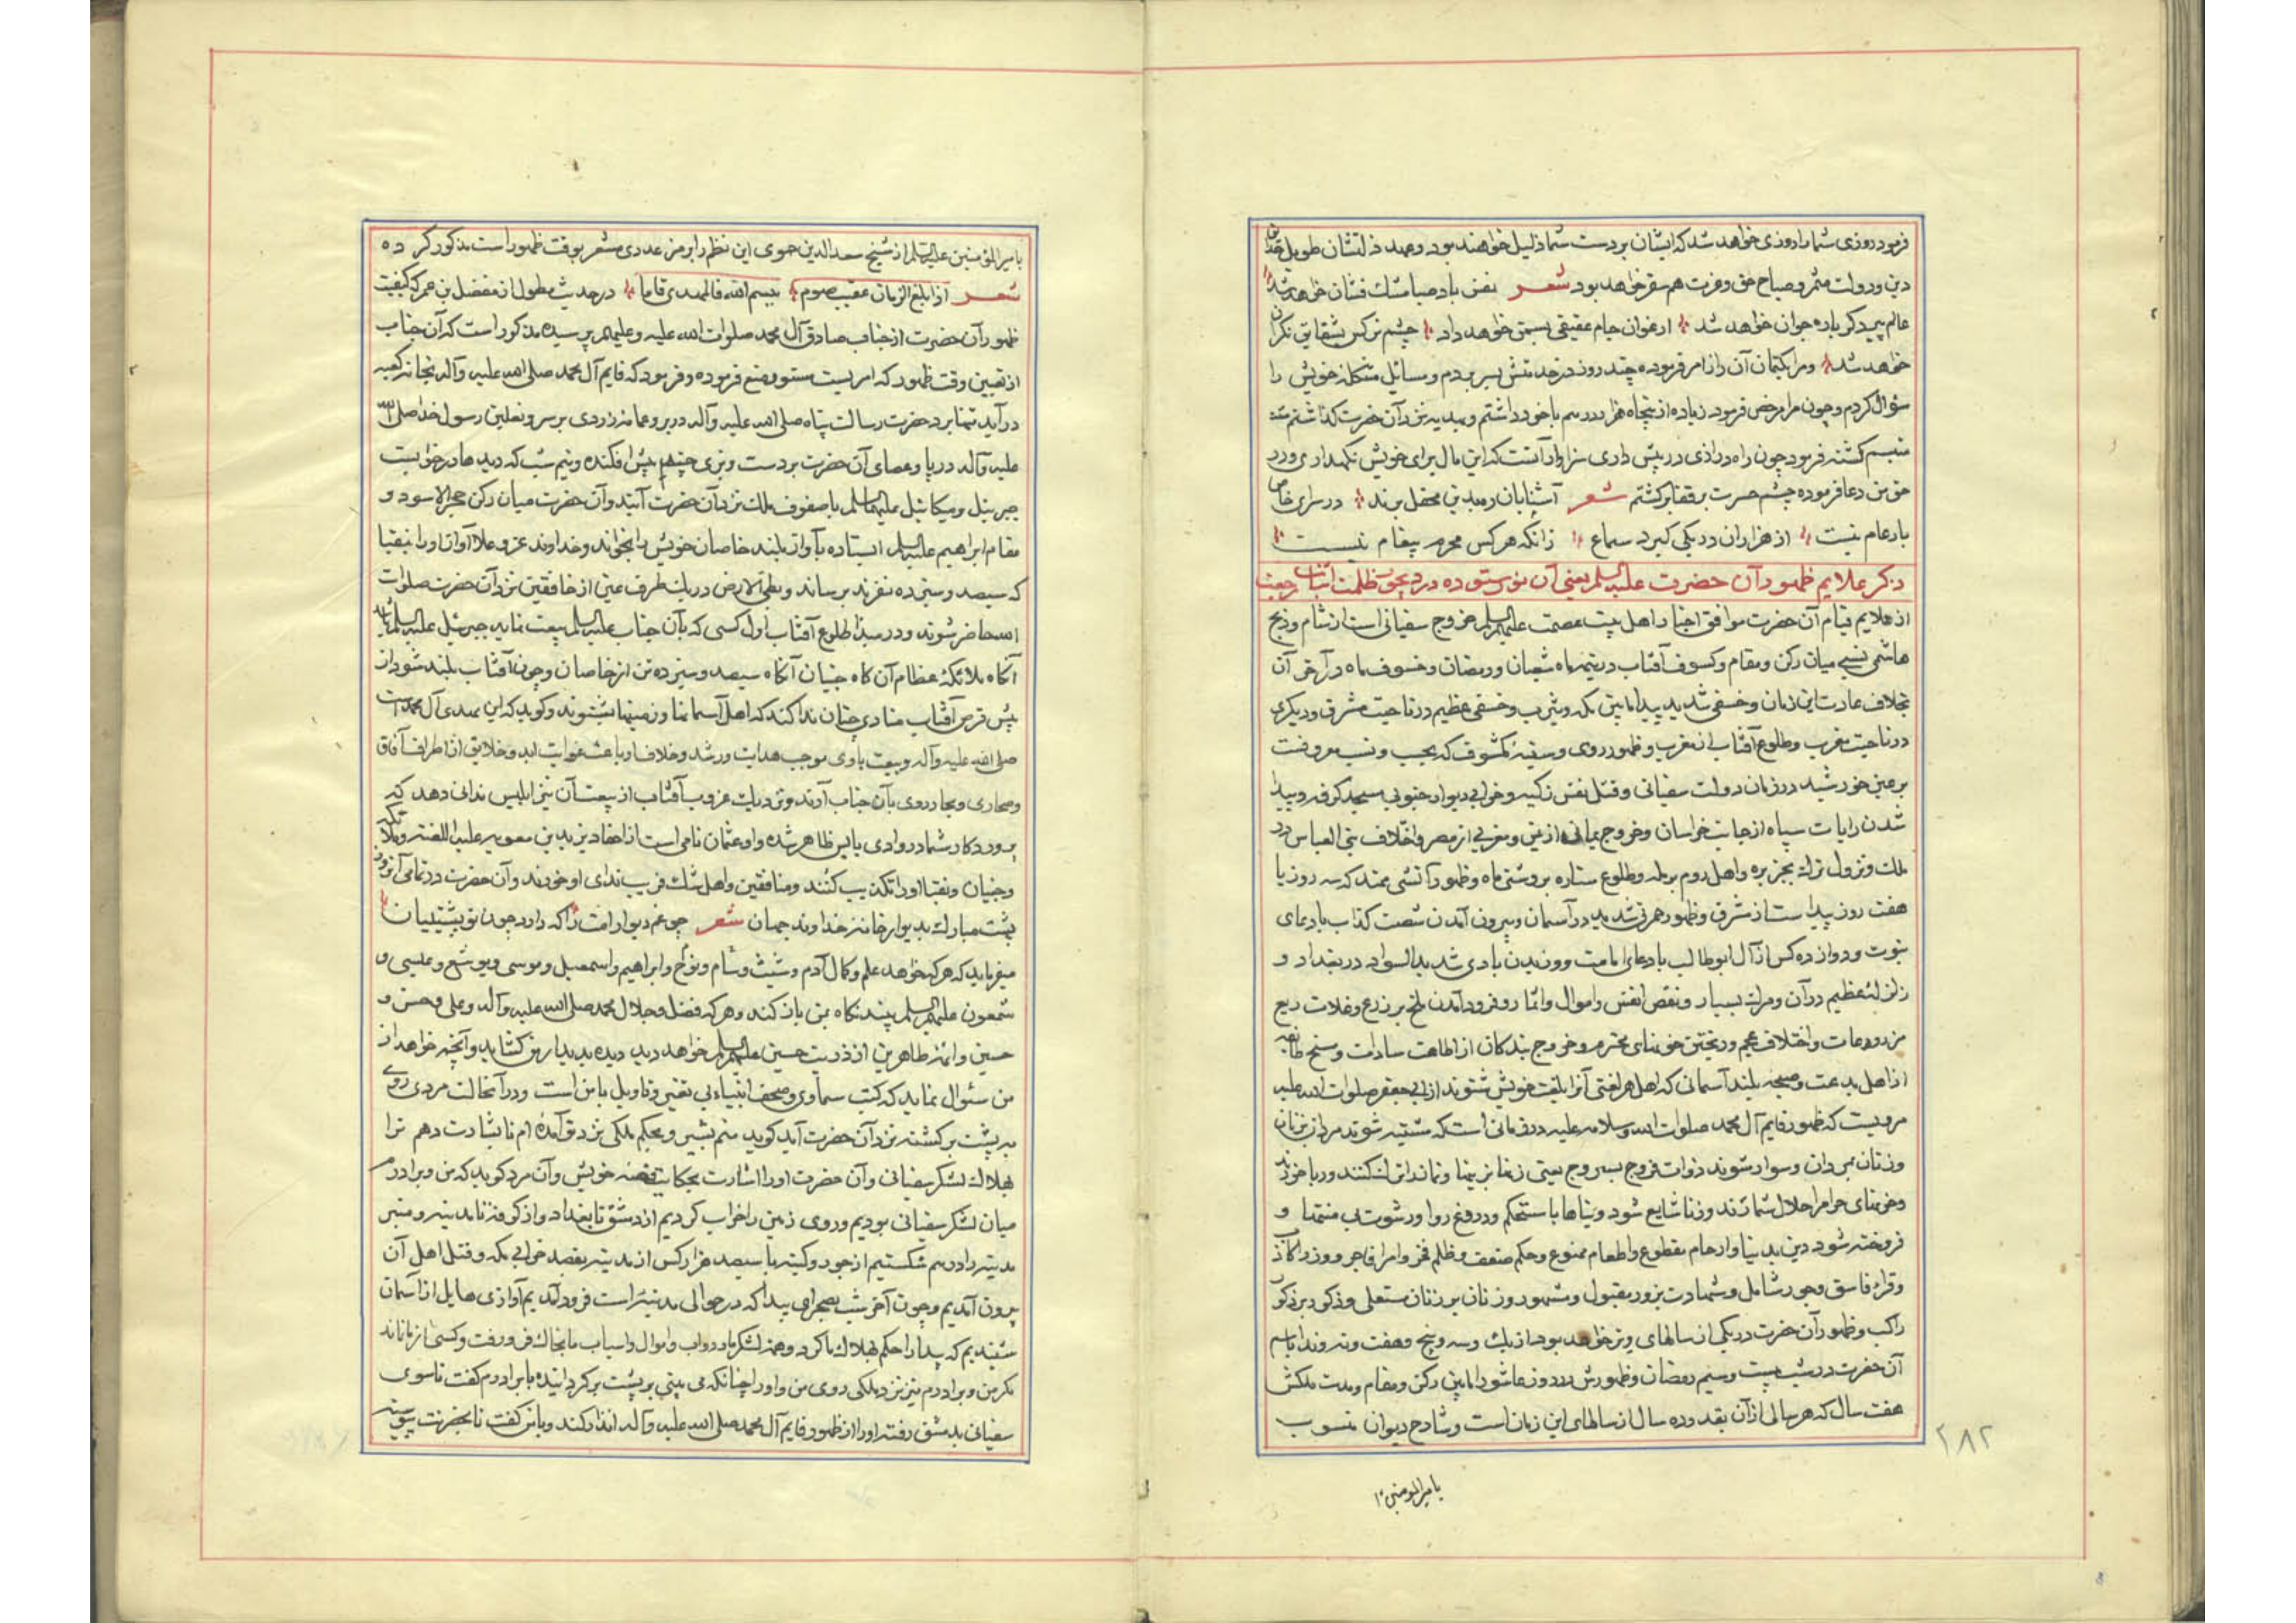 فرمود روزی شما را روزی خواهد شد که ایشان بر دست شما ذلیل خواهند بود و عهد ذلتشان طویل
دین و دولت مثمر و صباح حق و عزت هم سفر خواهد بود شعر نفس باد صبا مشک فشان خواهد شد
عالم پیر دگر باره جوان خواهد شد ارغوان جام عقیقی بسمن خواهد داد چشم نرکس بشقایق نکران
خواهد شد و مرا بکتمان آن راز امر فرموده چند روز در خدمتش بسر بردم و مسائل مشکله خویش را
سؤال کردم و چون مرا مرخص فرمود زیاده از پنجاه هزار درهم با خود داشتم و بهدیه نزد آن حضرت کذاشتم
متبسم کشته فرمود چون راه درازی در پیش داری سزاوار آنست که این مال برای خویش نکهداری و در
حق من دعا فرموده چشم حسرت بر قفا برکشتم شعر آشنایان ره بدین محفل برند در سرای خاص
بار عام نیست از هزاران در یکی کیرد سماع زانکه هر کس محرم پیغام نیست
ذکر علایم ظهور آن حضرت علیه السلم یعنی آن نور ستوده در دیجور ظلمت
از علایم قیام آن حضرت موافق اخبار اهل بیت عصمت علیهم السلم خروج سفیانی است از شام و ذبح
هاشمی نسبی میان رکن و مقام و کسوف آفتاب در نیمه ماه شعبان و رمضان و خسوف ماه در آخر آن
بخلاف عادت این زمان و خسفی شدید بیدا مابین مکه و یثرب و خسفی عظیم در ناحیت مشرق و دیکری
در ناحیت مغرب و طلوع آفتاب از مغرب و ظهور روی و سینهٔ مکشوف که بحسب و نسب معروفست
بر عین خورشید در زمان دولت سفیانی و قتل نفس زکیه و خرابی دیوار جنوبی مسجد کوفه و پیدا
شدن رایات سیاه از جانب خراسان و خروج یمانی از یمن و مغربی از مصر و اختلاف بنی العباس در
ملک و نزول ترک بجزیره و اهل روم برمله و طلوع ستاره بروشنی ماه و ظهور آتشی ممتد که سه روز یا
هفت روز پیداست از مشرق و ظهور حمرتی شدید در آسمان و بیرون آمدن شصت کذاب بادعای
نبوت و دوازده کس از آل ابو طالب بادعای امامت و وزیدن بادی شدید السواد در بغداد و
زلزلهٔ عظیم در آن و مرک بسیار و نقص انفس و اموال و اثمار و فرود آمدن ملخ بر زرع و غلات ریع
مزروعات و اختلاف عجم و ریختن خونهای محترم و خروج بندکان از اطاعت سادات و مسخ طایفه
از اهل بدعت و صیحه بلند آسمانی که اهل هر لغتی آنرا بلغت خویش شنوند از ابی جعفر صلوات الله علیه
مرویست که ظهور قایم آل محمد صلوات الله و سلامه علیه در زمانی است که متشبه شوند مردان بزنان
و زنان بمردان و سوار شوند ذوات فروج بسروج یعنی زنها بزینها و نماند این لنکنند و ربا خورند
و خونهای حرام را حلال شمارند و زنا شایع شود و بناها با مستحکم و دروغ روا و رشوت بی منتها و
فروخته شود دین بدنیا و ارحام مقطوع و اطعام ممنوع و حکم ضعف و ظلم فخر و امرا فاجر و وزرا کاذب
و قراء فاسق و جور شامل و شهادت بزور مقبول و مشهور و زنان بر زنان مستعلی و ذکور بر ذکور
راکب و ظهور آن حضرت در یکی از سالهای وتر خواهد بود از یک و سه و پنج و هفت و نه و ندا باسم
آن حضرت در شب بیست و سیم رمضان و ظهورش در روز عاشورا مابین رکن و مقام و مدت ملکش
هفت سال که هر سالی از آن بقدر ده سال از سالهای این زمان است و شارح دیوان منسوب
٢٨٢
بامیرالمومنین
بامیرالمؤمنین علیه السلم از شیخ سعد الدین حموی این نظم را بر مز عددی مشعر بوقت ظهور است مذکور کرده
شعر اذا بلغ الزمان عقیب صوم ببسم الله فالمهدی قاما در حدیث مطول از مفضل بن عمر که کیفیت
ظهور آن حضرت از جناب صادق آل محمد صلوات الله علیه و علیهم پرسیده مذکور است که آن جناب
از تعیین وقت ظهور که امریست مستور منع فرموده و فرمود که قایم آل محمد صلی الله علیه و آله بخانه کعبه
در آید تنها برد حضرت رسالت پناه صلی الله علیه و آله در بر و عمامه زردی بر سر و نعلین رسول خدا صلی الله
علیه و آله در پا و عصای آن حضرت بر دست و بزی چند در پیش افکنده و نیم شب که دیدها در خوابست
جبرئیل و میکائیل علیهما السلم با صفوف ملک نزد آن حضرت آیند و آن حضرت میان رکن حجر الاسود و
مقام ابراهیم علیه السلم ایستاده بآواز بلند خاصان خویش را بخواند و خداوند عز و علا آواز او را بنقبا
که سیصد و سیزده نفرند برساند و بطی الارض در یک طرف عین از خافقین نزد آن حضرت صلوات
الله حاضر شوند و در مبدأ طلوع آفتاب اول کسی که بآن جناب علیه السلم بیعت نماید جبرئیل علیه السلم باشد
آنکاه ملائکهٔ عظام آن کاه جنیان آنکاه سیصد و سیزده تن از خاصان و چون آفتاب بلند شود از
پیش قرص آفتاب منادی چنان ندا کند که اهل آسمانها و زمینها بشنوند و کوید که این مهدی آل محمد است
صلی الله علیه و آله و بیعت با وی موجب هدایت و رشد و خلاف او باعث غوایت ابد و خلایق از اطراف آفاق
و صحاری و بحار روی بآن جناب آورند و نزدیک غروب آفتاب از بیعت آن شیخ ابلیس ندائی دهد که
پروردکار شما در وادی یابس ظاهر شده و او عثمان نامی است از احفاد یزید بن معویه علیه اللعنه و ملائکه
و جنیان و نقبا او را تکذیب کنند و منافقین و اهل شک فریب ندای او خورند و آن حضرت در تمامی آن روز
پشت مبارک بدیوار خانه خداوند جهان شعر چو غم دیوار امت را که دارد چون تو پشتیبان
میفرماید که هر که خواهد علم و کمال آدم و شیث و سام و نوح و ابراهیم و اسمعیل و موسی و یوشع و عیسی و
شمعون علیهم السلم بیند نکاه بمن باز کند و هر که فضل و جلال محمد صلی الله علیه و آله و علی و حسن و
حسین و ائمه طاهرین از ذریت حسین علیهم السلم خواهد دید دیده بدیدار من کشاید و آنچه خواهد از
من سئوال نماید که کتب سماوی و صحف انبیاء بی تغییر و تاویل با من است و در آنحالت مردی روی
به پشت برکشته نزد آن حضرت آید کوید منم بشیر و بحکم ملکی نزد تو آمده ام تا بشارت دهم ترا
بهلاک لشکر سفیانی و آن حضرت او را اشارت بحکایت قصه خویش و آن مرد کوید که من و برادرم
میان لشکر سفیانی بودیم و روی زمین را خراب کردیم از دمشق تا بغداد و از کوفه تا مدینه و منبر
مدینه را در هم شکستیم از جور و کینه با سیصد هزار کس از مدینه بقصد خرابی مکه و قتل اهل آن
بیرون آمدیم و چون آخر شب بصحرای بیدا که در حوالی مدینه است فرود آمدیم آوازی هایل از آسمان
شنیدیم که بیدا را حکم بهلاک ما کرد و همه لشکر با دواب و اموال و اسباب ما بخاک فرو رفت و کسی از ما نماند
مکر من و برادرم نیز نزدیک ملکی روی من و او را چنانکه می بینی بر پشت بر کردانیده با برادرم کفت تا سوی
سفیانی بدمشق رفته او را از ظهور قایم آل محمد صلی الله علیه و آله انذار کند و با من کفت تا بحضرتت